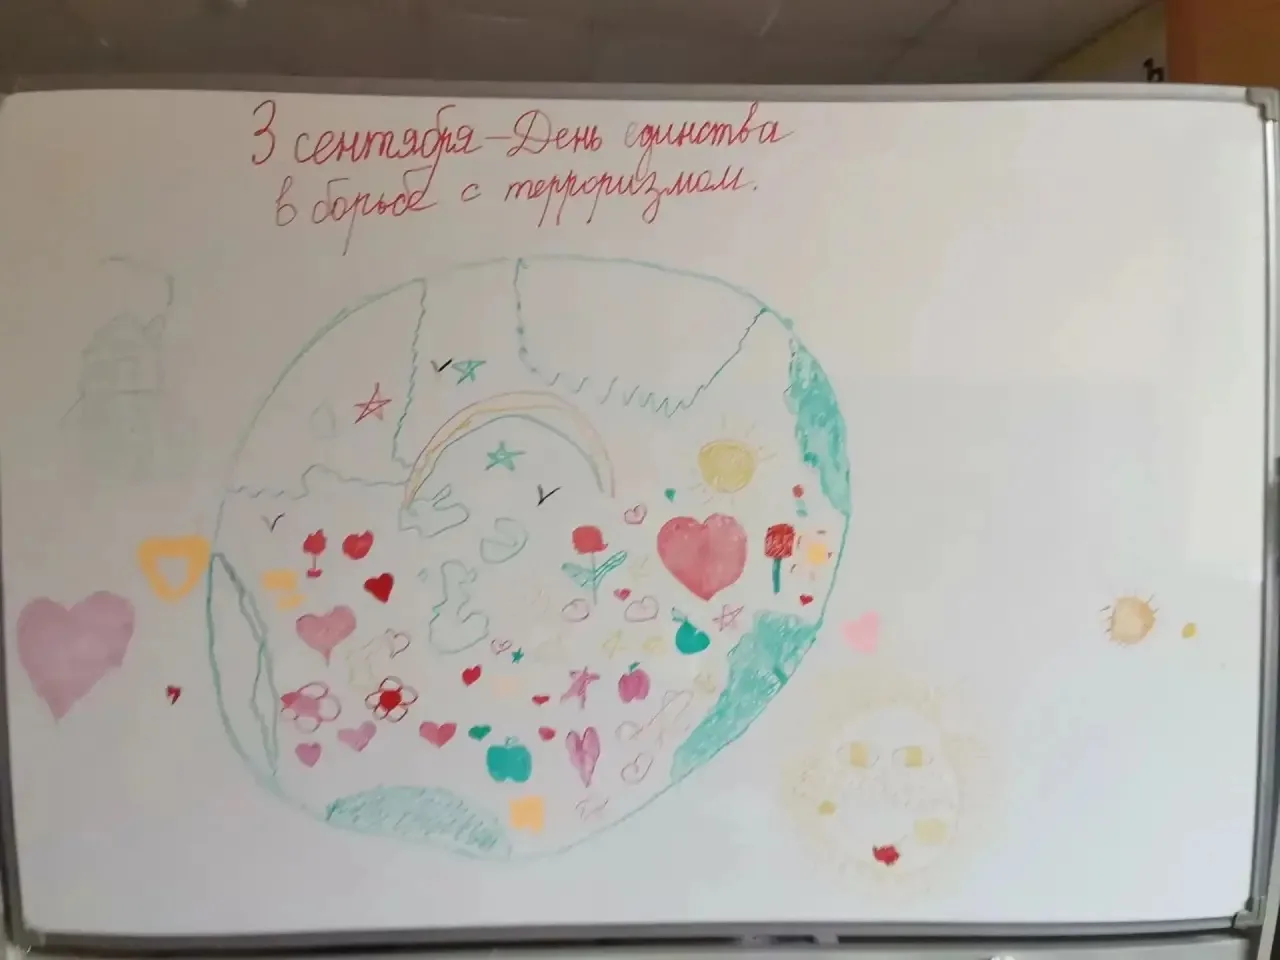 3 сентября – День единства
в борьбе с терроризмом.